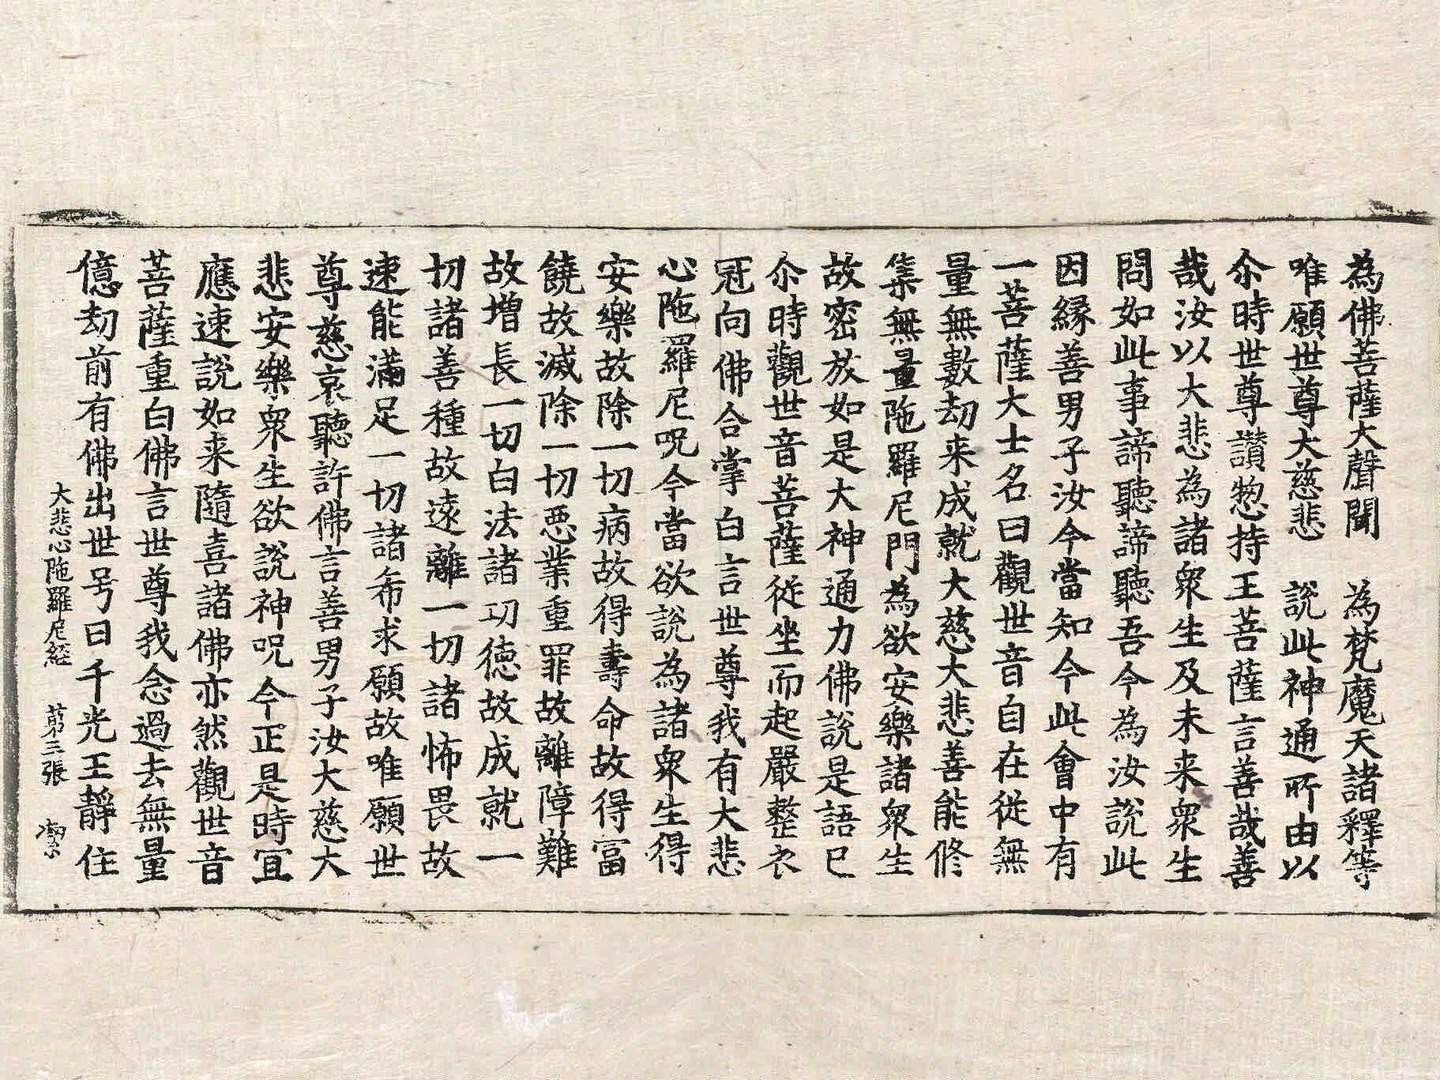 為佛菩薩大聲聞　為梵魔天諸釋等
唯願世尊大慈悲　說此神通所由以
尒時世尊讃惣持王菩薩言善哉善
哉汝以大悲為諸衆生及未来衆生
問如此事諦聽諦聽吾今為汝説此
因緣善男子汝今當知今此會中有
一菩薩大士名曰觀世音自在從無
量無數劫来成就大慈大悲善能修
集無量陁羅尼門為欲安樂諸衆生
故密放如是大神通力佛說是語已
尒時觀世音菩薩從坐而起嚴整衣
冠向佛合掌白言世尊我有大悲
心陁羅尼呪今當欲說為諸衆生得
安樂故除一切病故得壽命故得富
饒故滅除一切惡業重罪故離障難
故增長一切白法諸功德故成就一
切諸善種故遠離一切諸怖畏故
速能滿足一切諸希求願故唯願世
尊慈哀聽許佛言善男子汝大慈大
悲安樂衆生欲說神呪今正是時冝
應速說如来隨喜諸佛亦然觀世音
菩薩重白佛言世尊我念過去無量
億劫前有佛出世号曰千光王靜住
大悲心陁羅尼經　第三張